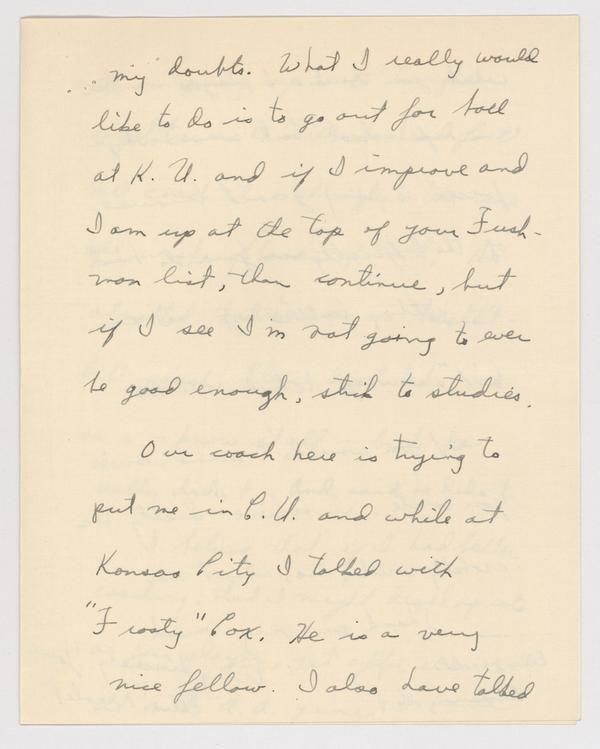 my doubts. What I really would
like to do is to go out for ball
at K. U. and if I improve and
I am up at the top of your Fresh-
man list, than continue, but
if I see I'm not going to ever
be good enough, stick to studies.
Our coach here is trying to
put me in C. U. and while at
Kansas City I talked with
"Frosty" Cox. He is a very
nice fellow. I also have talked